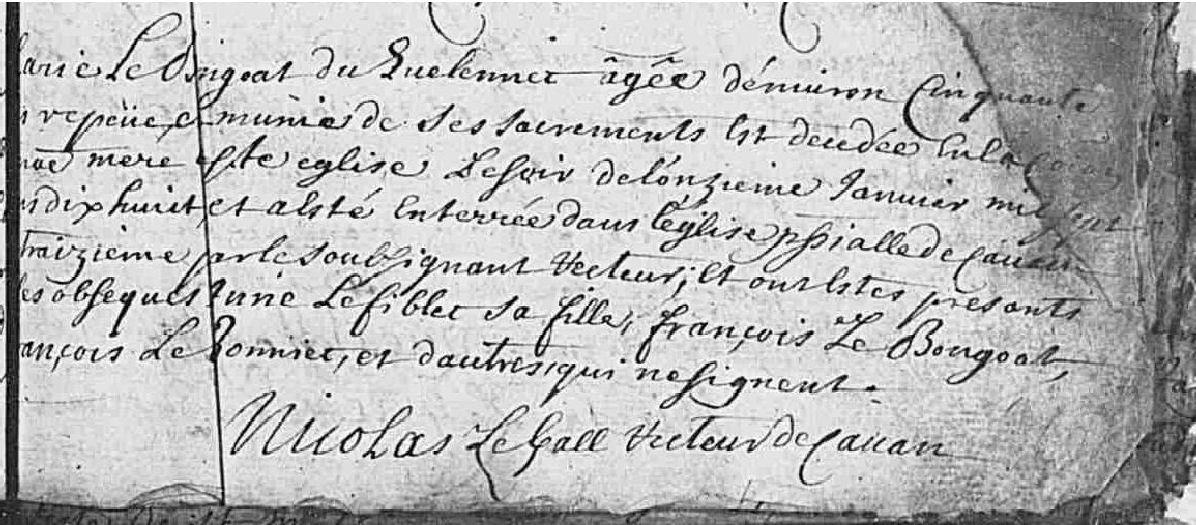 arie Le Bongoat du Quelennec âgée d'énuiron Cinquante
repeüe, et muniede ses sacrements Est deceđée En la
mere ste eglise Le soir de l'onzieme Januier mil sept
dixhuict, et a esté Enterrée dans l'église pssialle de Cauan
traizieme par le soubsignant Recteur; Et ont Estes presants
es obseques Le fiblec sa fille, françois Le Bongoat,
ançois Le Bonniec, et d'autres, qui ne signent.
Nicolas Le Gall Recteur de Cauan